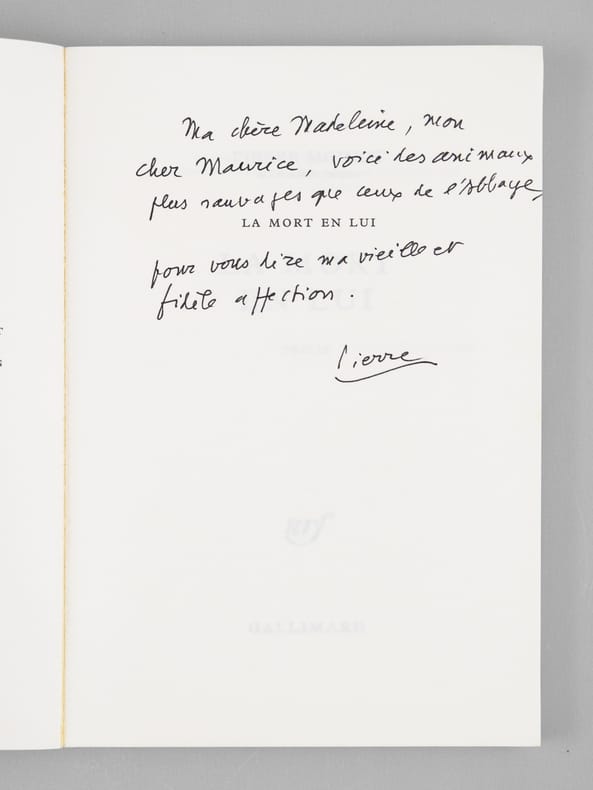 Ma chère Madeleine, mon
cher Maurice, voici des animaux
plus sauvages que ceux de l'Abbaye,
LA MORT EN LUI
pour vous dire ma vieille et
fidèle affection.
Pierre
nrf
GALLIMARD